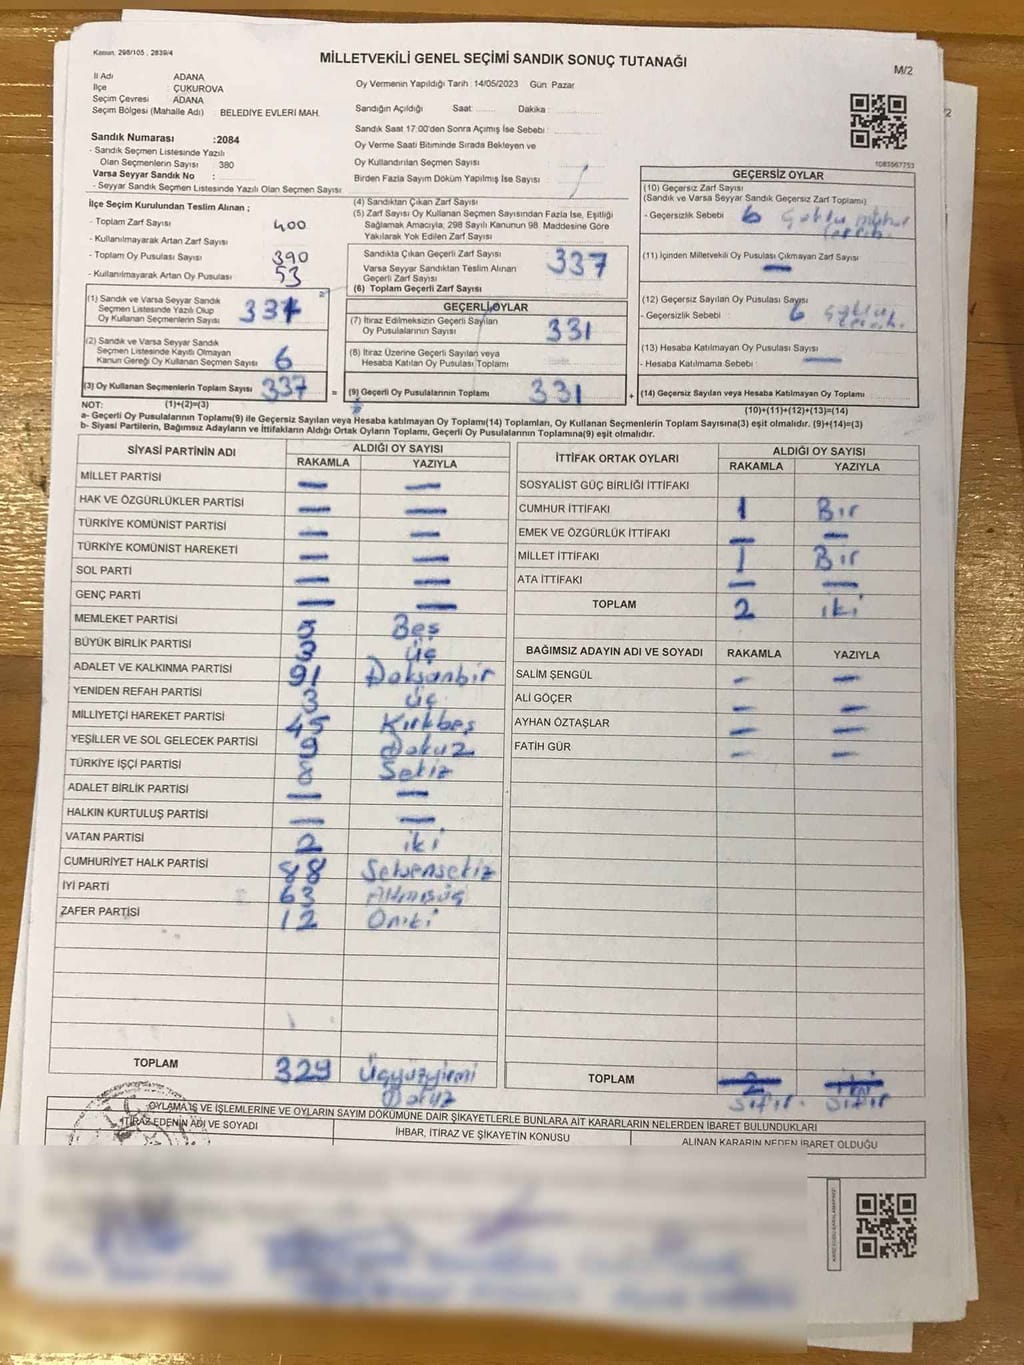 Kanun, 298/105 , 2839/4
MİLLETVEKİLİ GENEL SEÇİMİ SANDIK SONUÇ TUTANAĞI
M/2
İl Adı : ADANA
İlçe : ÇUKUROVA
Seçim Çevresi : ADANA
Seçim Bölgesi (Mahalle Adı) : BELEDİYE EVLERİ MAH.
Sandık Numarası :2084
- Sandık Seçmen Listesinde Yazılı
Olan Seçmenlerin Sayısı : 380
Varsa Seyyar Sandık No :
- Seyyar Sandık Seçmen Listesinde Yazılı Olan Seçmen Sayısı
Oy Vermenin Yapıldığı Tarih : 14/05/2023 Gün: Pazar
Sandığın Açıldığı Saat: Dakika :
Sandık Saat 17:00'den Sonra Açımış İse Sebebi :
Oy Verme Saati Bitiminde Sırada Bekleyen ve
Oy Kullandırılan Seçmen Sayısı
Birden Fazla Sayım Döküm Yapılmış İse Sayısı :
1083567753
İlçe Seçim Kurulundan Teslim Alınan ;
- Toplam Zarf Sayısı 400
- Kullanılmayarak Artan Zarf Sayısı
- Toplam Oy Pusulası Sayısı 390
- Kullanılmayarak Artan Oy Pusulası 53
(1) Sandık ve Varsa Seyyar Sandık
Seçmen Listesinde Yazılı Olup
Oy Kullanan Seçmenlerin Sayısı
(2) Sandık ve Varsa Seyyar Sandık
Seçmen Listesinde Kayıtlı Olmayan
Kanun Gereği Oy Kullanan Seçmen Sayısı 6
(3) Oy Kullanan Seçmenlerin Toplam Sayısı 337 =
(4) Sandıktan Çıkan Zarf Sayısı
(5) Zarf Sayısı Oy Kullanan Seçmen Sayısından Fazla İse, Eşitliği
Sağlamak Amacıyla; 298 Sayılı Kanunun 98. Maddesine Göre
Yakılarak Yok Edilen Zarf Sayısı
Sandıkta Çıkan Geçerli Zarf Sayısı 337
Varsa Seyyar Sandıktan Teslim Alınan
Geçerli Zarf Sayısı
(6) Toplam Geçerli Zarf Sayısı
GEÇERLİ OYLAR
(7) İtiraz Edilmeksizin Geçerli Sayılan
Oy Pusulalarının Sayısı 331
(8) İtiraz Üzerine Geçerli Sayılan veya
Hesaba Katılan Oy Pusulası Toplamı
(9) Geçerli Oy Pusulalarının Toplamı 331 +
GEÇERSİZ OYLAR
(10) Geçersiz Zarf Sayısı
(Sandık ve Varsa Seyyar Sandık Geçersiz Zarf Toplamı)
- Geçersizlik Sebebi 6
(11) İçinden Milletvekili Oy Pusulası Çıkmayan Zarf Sayısı
(12) Geçersiz Sayılan Oy Pusulası Sayısı
- Geçersizlik Sebebi : 6
(13) Hesaba Katılmayan Oy Pusulası Sayısı
- Hesaba Katılmama Sebebi :
(14) Geçersiz Sayılan veya Hesaba Katılmayan Oy Toplamı
NOT: (1)+(2)=(3)
(10)+(11)+(12)+(13)=(14)
a- Geçerli Oy Pusulalarının Toplamı(9) ile Geçersiz Sayılan veya Hesaba katılmayan Oy Toplamı(14) Toplamları, Oy Kullanan Seçmenlerin Toplam Sayısına(3) eşit olmalıdır. (9)+(14)=(3)
b- Siyasi Partilerin, Bağımsız Adayların ve İttifakların Aldığı Ortak Oyların Toplamı, Geçerli Oy Pusulalarının Toplamına(9) eşit olmalıdır.
SİYASİ PARTİNİN ADI ALDIĞI OY SAYISI
RAKAMLA YAZIYLA
MİLLET PARTİSİ — —
HAK VE ÖZGÜRLÜKLER PARTİSİ — —
TÜRKİYE KOMÜNİST PARTİSİ — —
TÜRKİYE KOMÜNİST HAREKETİ — —
SOL PARTİ — —
GENÇ PARTİ — —
MEMLEKET PARTİSİ 5 Beş
BÜYÜK BİRLİK PARTİSİ 3 Üç
ADALET VE KALKINMA PARTİSİ 91 Doksanbir
YENİDEN REFAH PARTİSİ 3 Üç
MİLLİYETÇİ HAREKET PARTİSİ 45 Kırkbeş
YEŞİLLER VE SOL GELECEK PARTİSİ 9 Dokuz
TÜRKİYE İŞÇİ PARTİSİ 8 Sekiz
ADALET BİRLİK PARTİSİ — —
HALKIN KURTULUŞ PARTİSİ — —
VATAN PARTİSİ 2 iki
CUMHURİYET HALK PARTİSİ 88 Seksensekiz
İYİ PARTİ 63 Altmışüç
ZAFER PARTİSİ 12 Oniki
TOPLAM 329 Üçyüzyirmi
Dokuz
İTTİFAK ORTAK OYLARI ALDIĞI OY SAYISI
RAKAMLA YAZIYLA
SOSYALİST GÜÇ BİRLİĞİ İTTİFAKI
CUMHUR İTTİFAKI 1 Bir
EMEK VE ÖZGÜRLÜK İTTİFAKI — —
MİLLET İTTİFAKI 1 Bir
ATA İTTİFAKI — —
TOPLAM 2 iki
BAĞIMSIZ ADAYIN ADI VE SOYADI RAKAMLA YAZIYLA
SALİM ŞENGÜL — —
ALİ GÖÇER — —
AYHAN ÖZTAŞLAR — —
FATİH GÜR — —
TOPLAM 2 iki
Sıfır Sıfır
OYLAMA İŞ VE İŞLEMLERİNE VE OYLARIN SAYIM DÖKÜMÜNE DAİR ŞİKAYETLERLE BUNLARA AİT KARARLARIN NELERDEN İBARET BULUNDUKLARI
İTİRAZ EDENİN ADI VE SOYADI İHBAR, İTİRAZ VE ŞİKAYETİN KONUSU ALINAN KARARIN NEDEN İBARET OLDUĞU